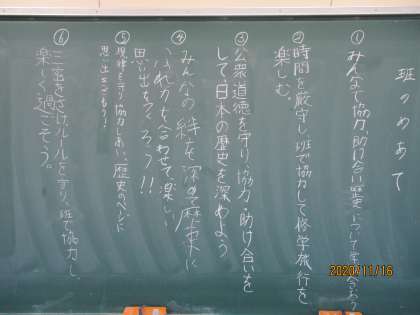 班のめあて
①みんなで協力、助け合い歴史について学べあおう
②時間を厳守し、班で協力して修学旅行を
楽しむ。
③公衆道徳を守り、協力、助け合いを
して、日本の歴史を深めよう
④みんなの絆を深めて歴史に
ふれ力を合わせて、楽しい
思い出をつくろう!!
⑤規律を守り協力しあい、歴史のページに
思い出をつくろう!
⑥三密をさけ、ルールを守り、班で協力し、
楽しく過ごそう。
2020/11/16